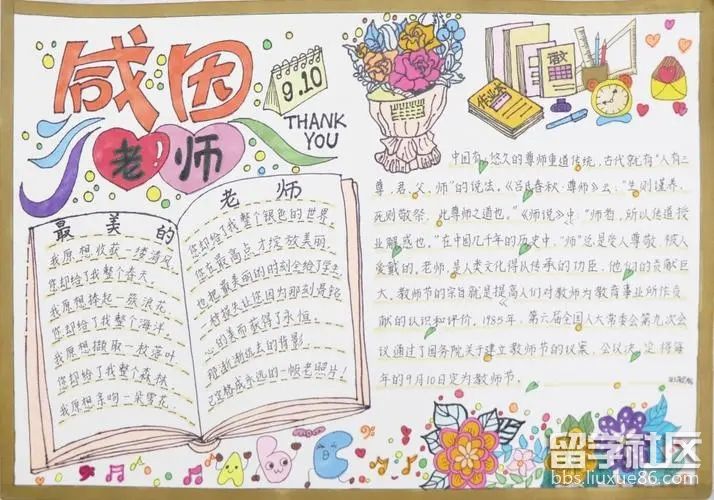 感因
老师
9.10
THANK
YOU
最美的
我原想收获一缕清风
你却给了我整个春天
我原想捧起一簇浪花
你却给了我整个海洋
我原想撷取一枚落叶
你却给了我整个森林
我原想亲吻一朵雪花
老师
你却给了我整个银色的世界
您在最高点才绽放美丽
也把最美的时刻给了学生
心的美而获得了永恒
已定格成永远的一帧老照片!
作业本
教
中国有悠久的尊师重道传统,古代就有“人有三
尊,君、父、师”的说法。《吕氏春秋·尊师》云:“生则谨养,
死则敬祭,此尊师之道也。”《师说》中“师者,所以传道授
业解惑也。”在中国几千年的历史中,“师”总是受人尊敬、被人
爱戴的,老师,是人类文化得以传承的功臣,他们的贡献巨
大。教师节的宗旨就是提高人们对教师为教育事业所作贡
献的认识和评价。1985年,第六届全国人大常委会第九次会
议通过了国务院关于建立教师节的议案,会议决定将每
年的9月10日定为教师节。
ABC
留学社区
bbs.liuxue86.com